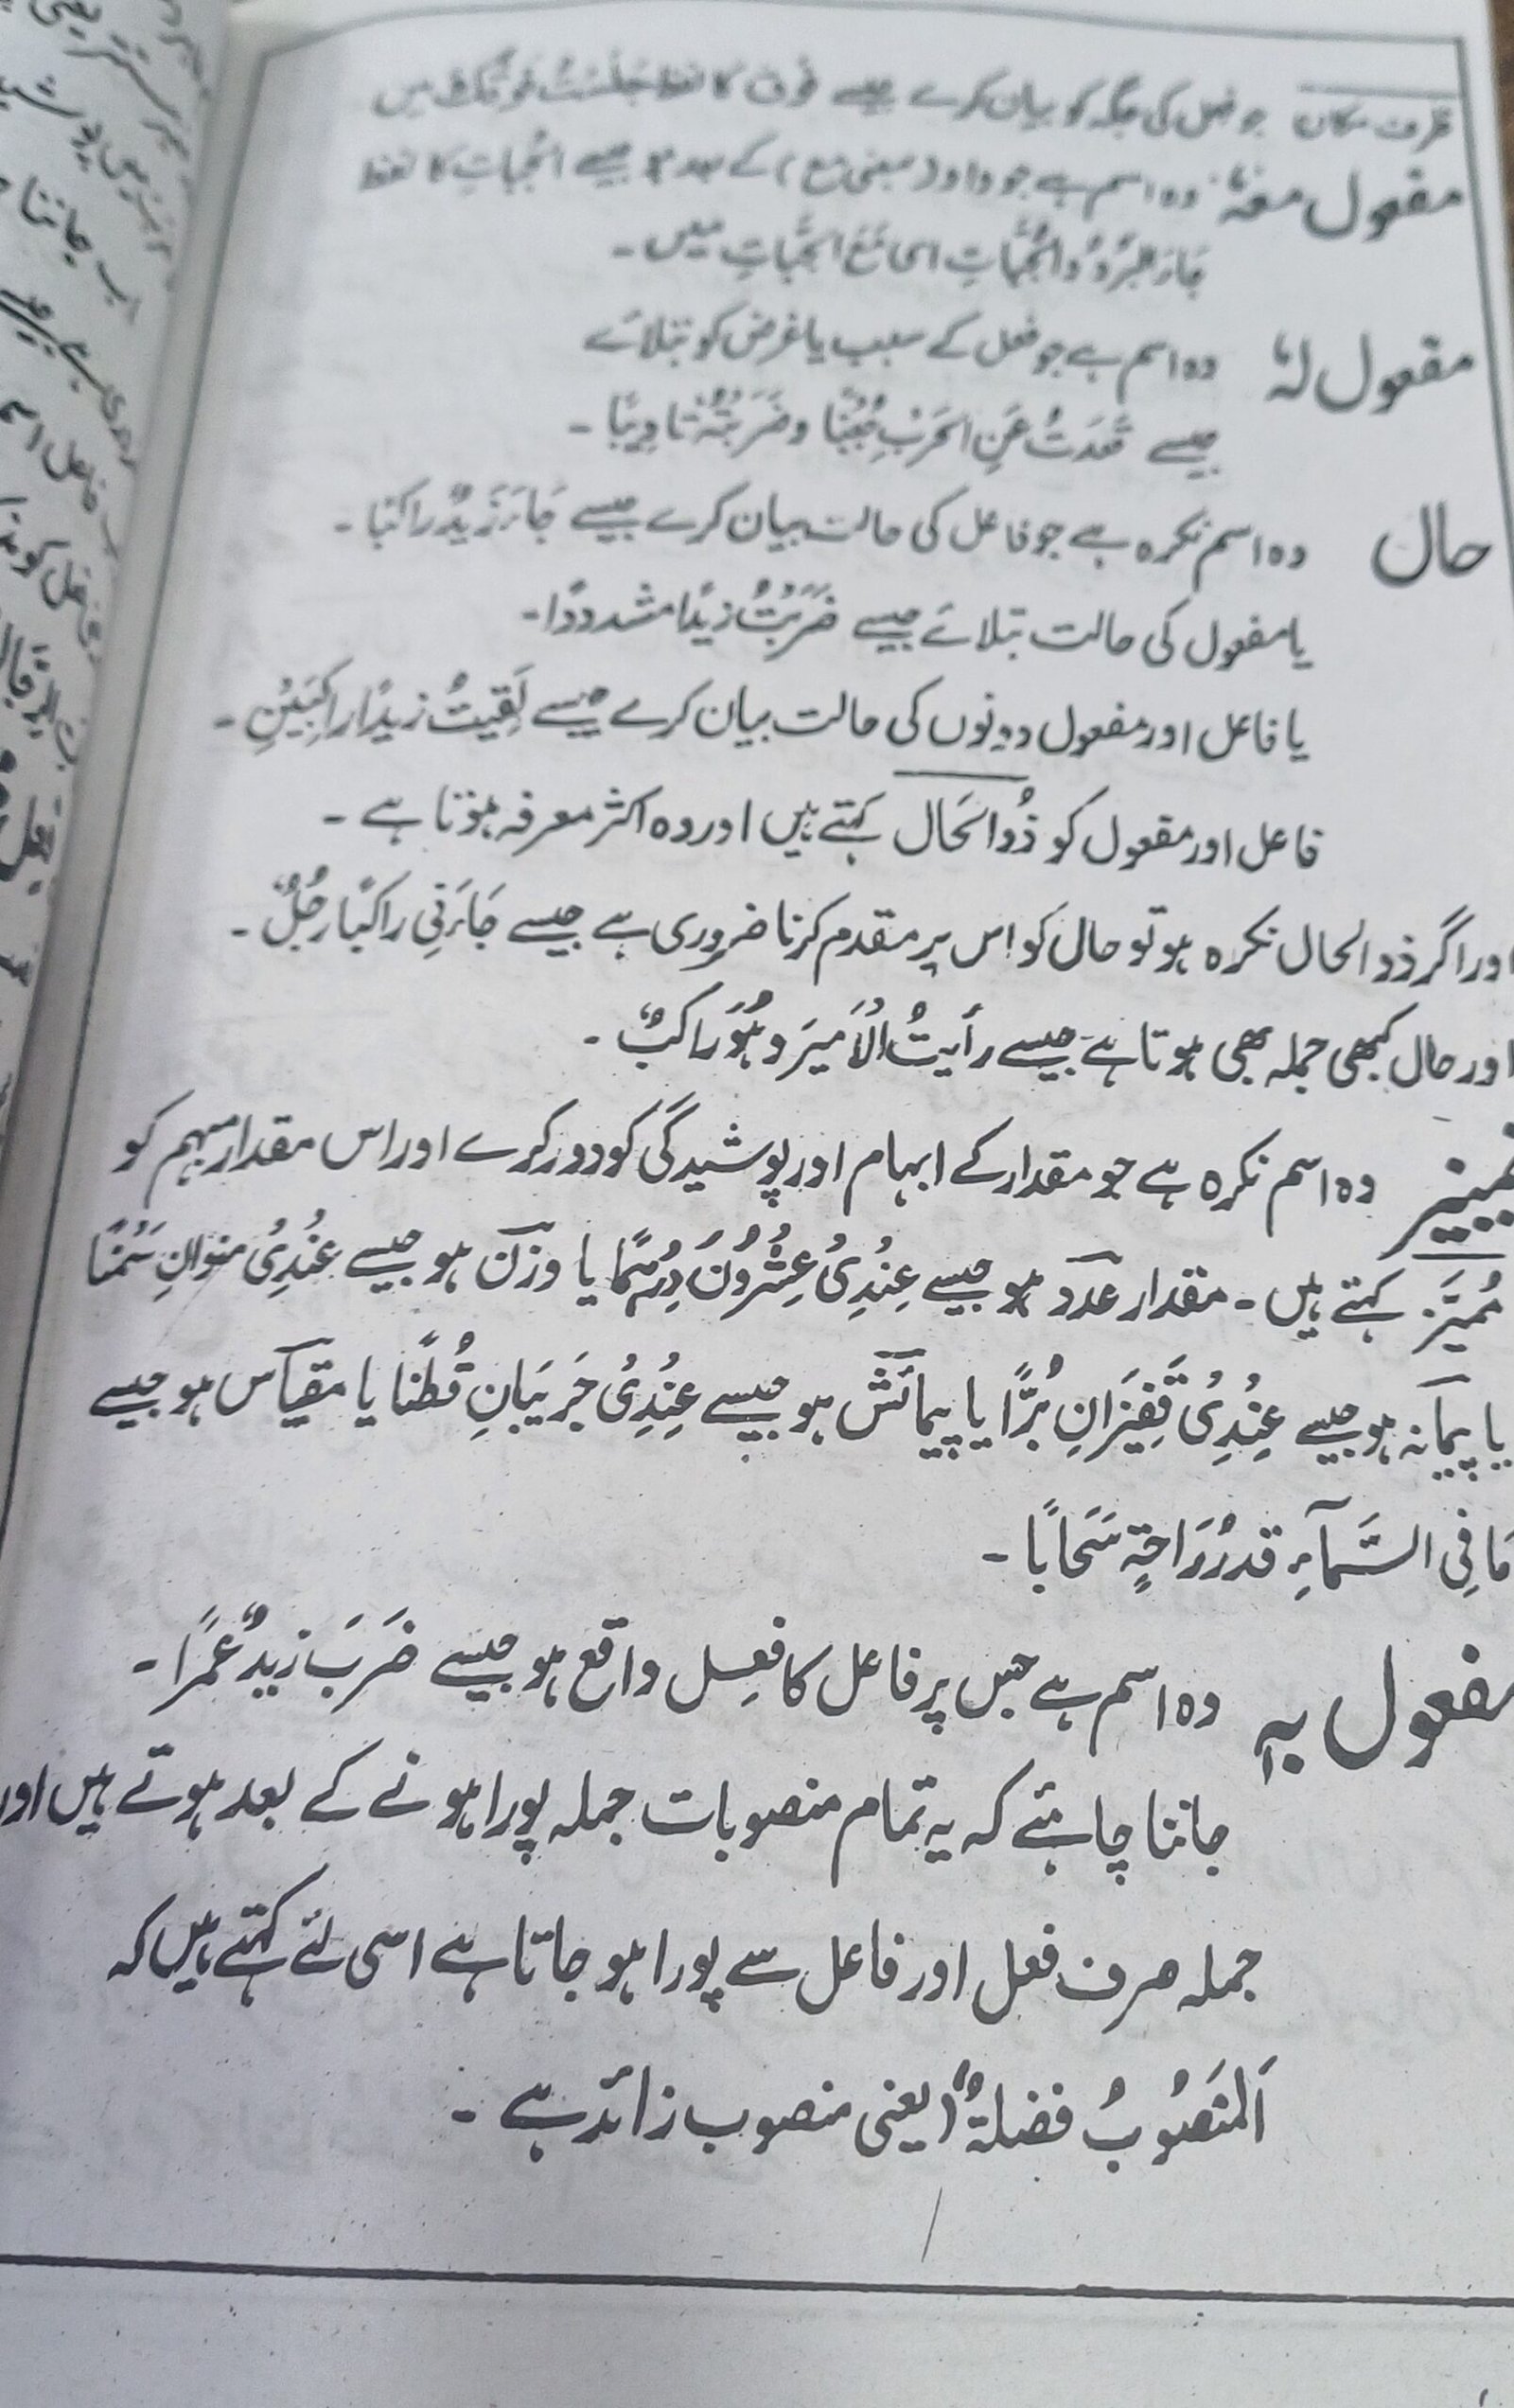 ظرف مکان جو فعل کی جگہ کو بیان کرے جیسے فوق کا لفظ جَلَسْتُ فَوْقَکَ میں
مفعول معہٗ وہ اسم ہے جو واو (بمعنی مع) کے بعد ہو جیسے الجُبَّاتِ کا لفظ
جَاءَ البَرْدُ وَالْجُبَّاتِ ای مَعَ الجُبَّاتِ میں۔
مفعول لہٗ وہ اسم ہے جو فعل کے سبب یا غرض کو بتلائے
جیسے قَعَدْتُ عَنِ الحَرْبِ جُبْنًا و ضَرَبْتُہٗ تادِیبًا۔
حال وہ اسم نکرہ ہے جو فاعل کی حالت بیان کرے جیسے جَاءَ زَیْدٌ راکبًا۔
یا مفعول کی حالت بتلائے جیسے ضَرَبْتُ زیدًا مشدودًا۔
یا فاعل اور مفعول دونوں کی حالت بیان کرے جیسے لَقِیْتُ زیدًا راکِبَیْنِ۔
فاعل اور مفعول کو ذُوالحَال کہتے ہیں اور وہ اکثر معرفہ ہوتا ہے۔
اور اگر ذوالحال نکرہ ہو تو حال کو اس پر مقدم کرنا ضروری ہے جیسے جَاءَنِی راکبًا رجُلٌ۔
اور حال کبھی جملہ بھی ہوتا ہے جیسے رأیتُ الْاَمیرَ وھُوَ راکبٌ۔
تمییز وہ اسم نکرہ ہے جو مقدار کے ابہام اور پوشیدگی کو دور کرے اور اس مقدار مبہم کو
مُمیَّز کہتے ہیں۔ مقدار عدد ہو جیسے عِنْدِیْ عِشْرُوْنَ دِرْہمًا یا وزن ہو جیسے عِنْدِیْ منوانِ سَمْنًا
یا پیمانہ ہو جیسے عِنْدِیْ قَفِیْزَانِ بُرًّا یا پیمائش ہو جیسے عِنْدِیْ جَرِیْبَانِ قُطْنًا یا مقیاس ہو جیسے
مَا فِی السَّمَآءِ قدرُ رَاحَۃٍ سَحَابًا۔
مفعول بہٖ وہ اسم ہے جس پر فاعل کا فعِل واقع ہو جیسے ضَرَبَ زیدٌ عَمْرًا۔
جاننا چاہئے کہ یہ تمام منصوبات جملہ پورا ہونے کے بعد ہوتے ہیں اور
جملہ صرف فعل اور فاعل سے پورا ہو جاتا ہے اسی لئے کہتے ہیں کہ
اَلمَنصُوْبُ فضلۃٌ (یعنی منصوب زائد ہے۔